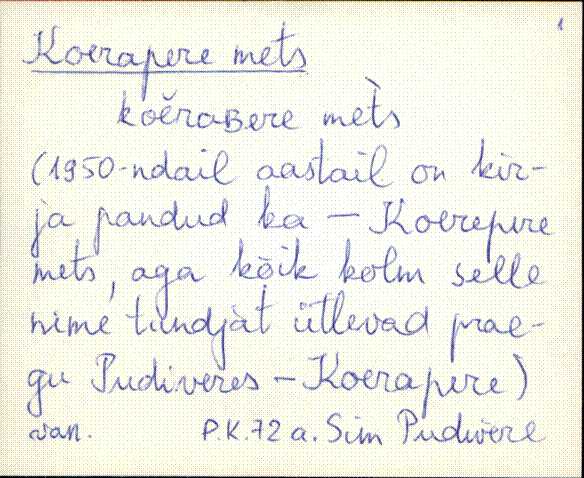 1
Koerapere mets
koĕraʙere met̀s
(1950-ndail aastail on kir-
ja pandud ka — Koerepere
mets, aga kõik kolm selle
nime tundjat ütlevad prae-
gu Pudiveres — Koerapere)
van. P.K.72 a. Sim Pudivere